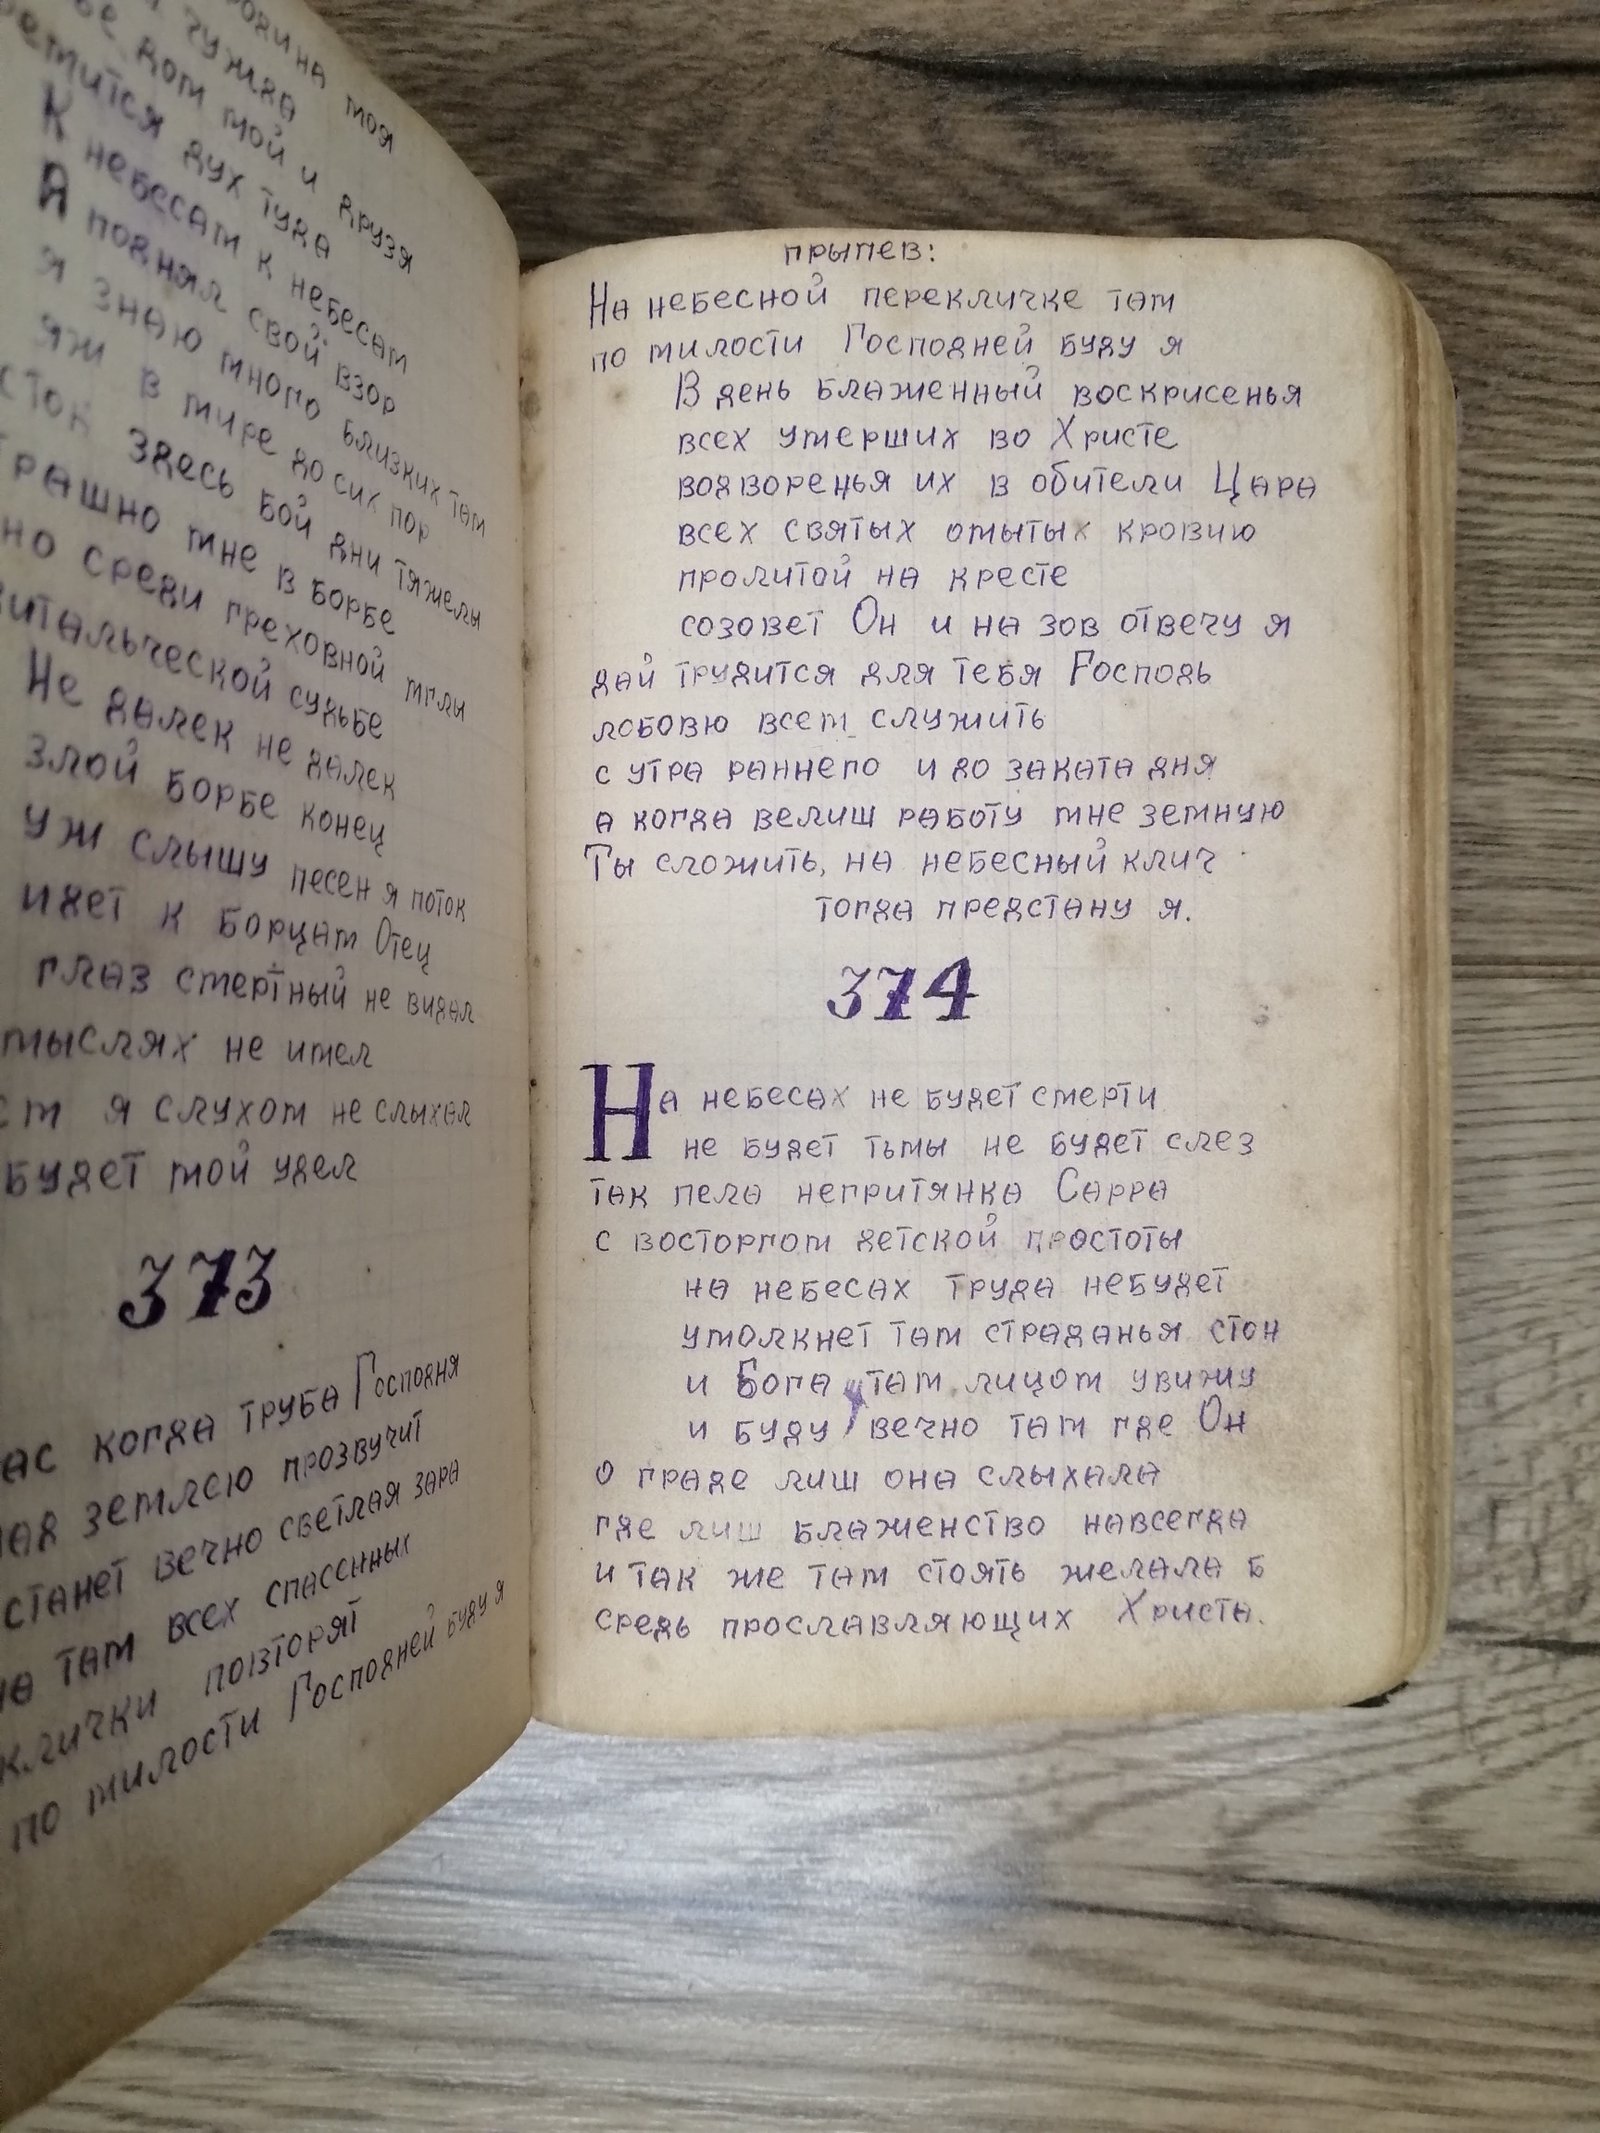 родина моя
чужда
дом мой и друзя
дух туда
К небесам к небесам
Я поднял свой взор
я знаю много близких там
яж в мире до сих пор
сток здесь бой дни тяжелы
страшно мне в борбе
но среди греховной мглы
скитальческой судьбе
Не далек не далек
злой борбе конец
уж слышу песен я поток
идет к борцам Отец
глаз смертный не видал
мыслях не имел
я слухом не слыхал
будет мой удел
373
час когда труба Господня
над землею прозвучит
станет вечно светлая заря
на там всех спасенных
клички повторят
по милости Господней буду я
прыпев:
На небесной перекличке там
по милости Господней буду я
В день блаженный воскрисенья
всех умерших во Христе
водворенья их в обители Царя
всех святых омытых кровию
пролитой на кресте
созовет Он и на зов отвечу я
дай трудится для тебя Господь
лобовю всем служить
с утра раннего и до заката дня
а когда велиш работу мне земную
Ты сложить, на небесный клич
тогда предстану я.
374
На небесах не будет смерти
не будет тьмы не будет слез
так пела негритянка Сарра
с восторгом детской простоты
на небесах труда небудет
умолкнет там страданья стон
и Бога там лицом увижу
и буду вечно там где Он
о граде лиш она слыхала
где лиш блаженство навсегда
и так же там стоять желала б
средь прославляющих Христа.